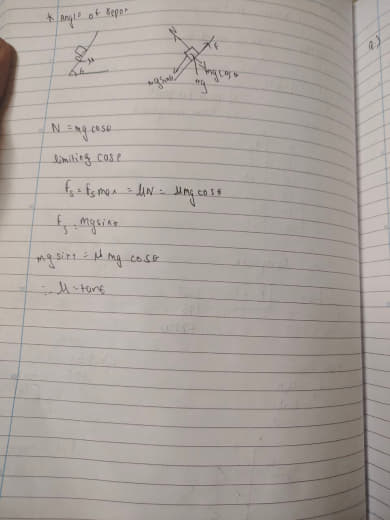 * Angle of Repos
θ
M
N
f
mg sinθ
mg
mg cosθ
N = mg cosθ
limiting case
fs = fs max = μN = μmg cosθ
fs = mg sinθ
mg sinθ = μ mg cosθ
∴ μ = tanθ
Q.)